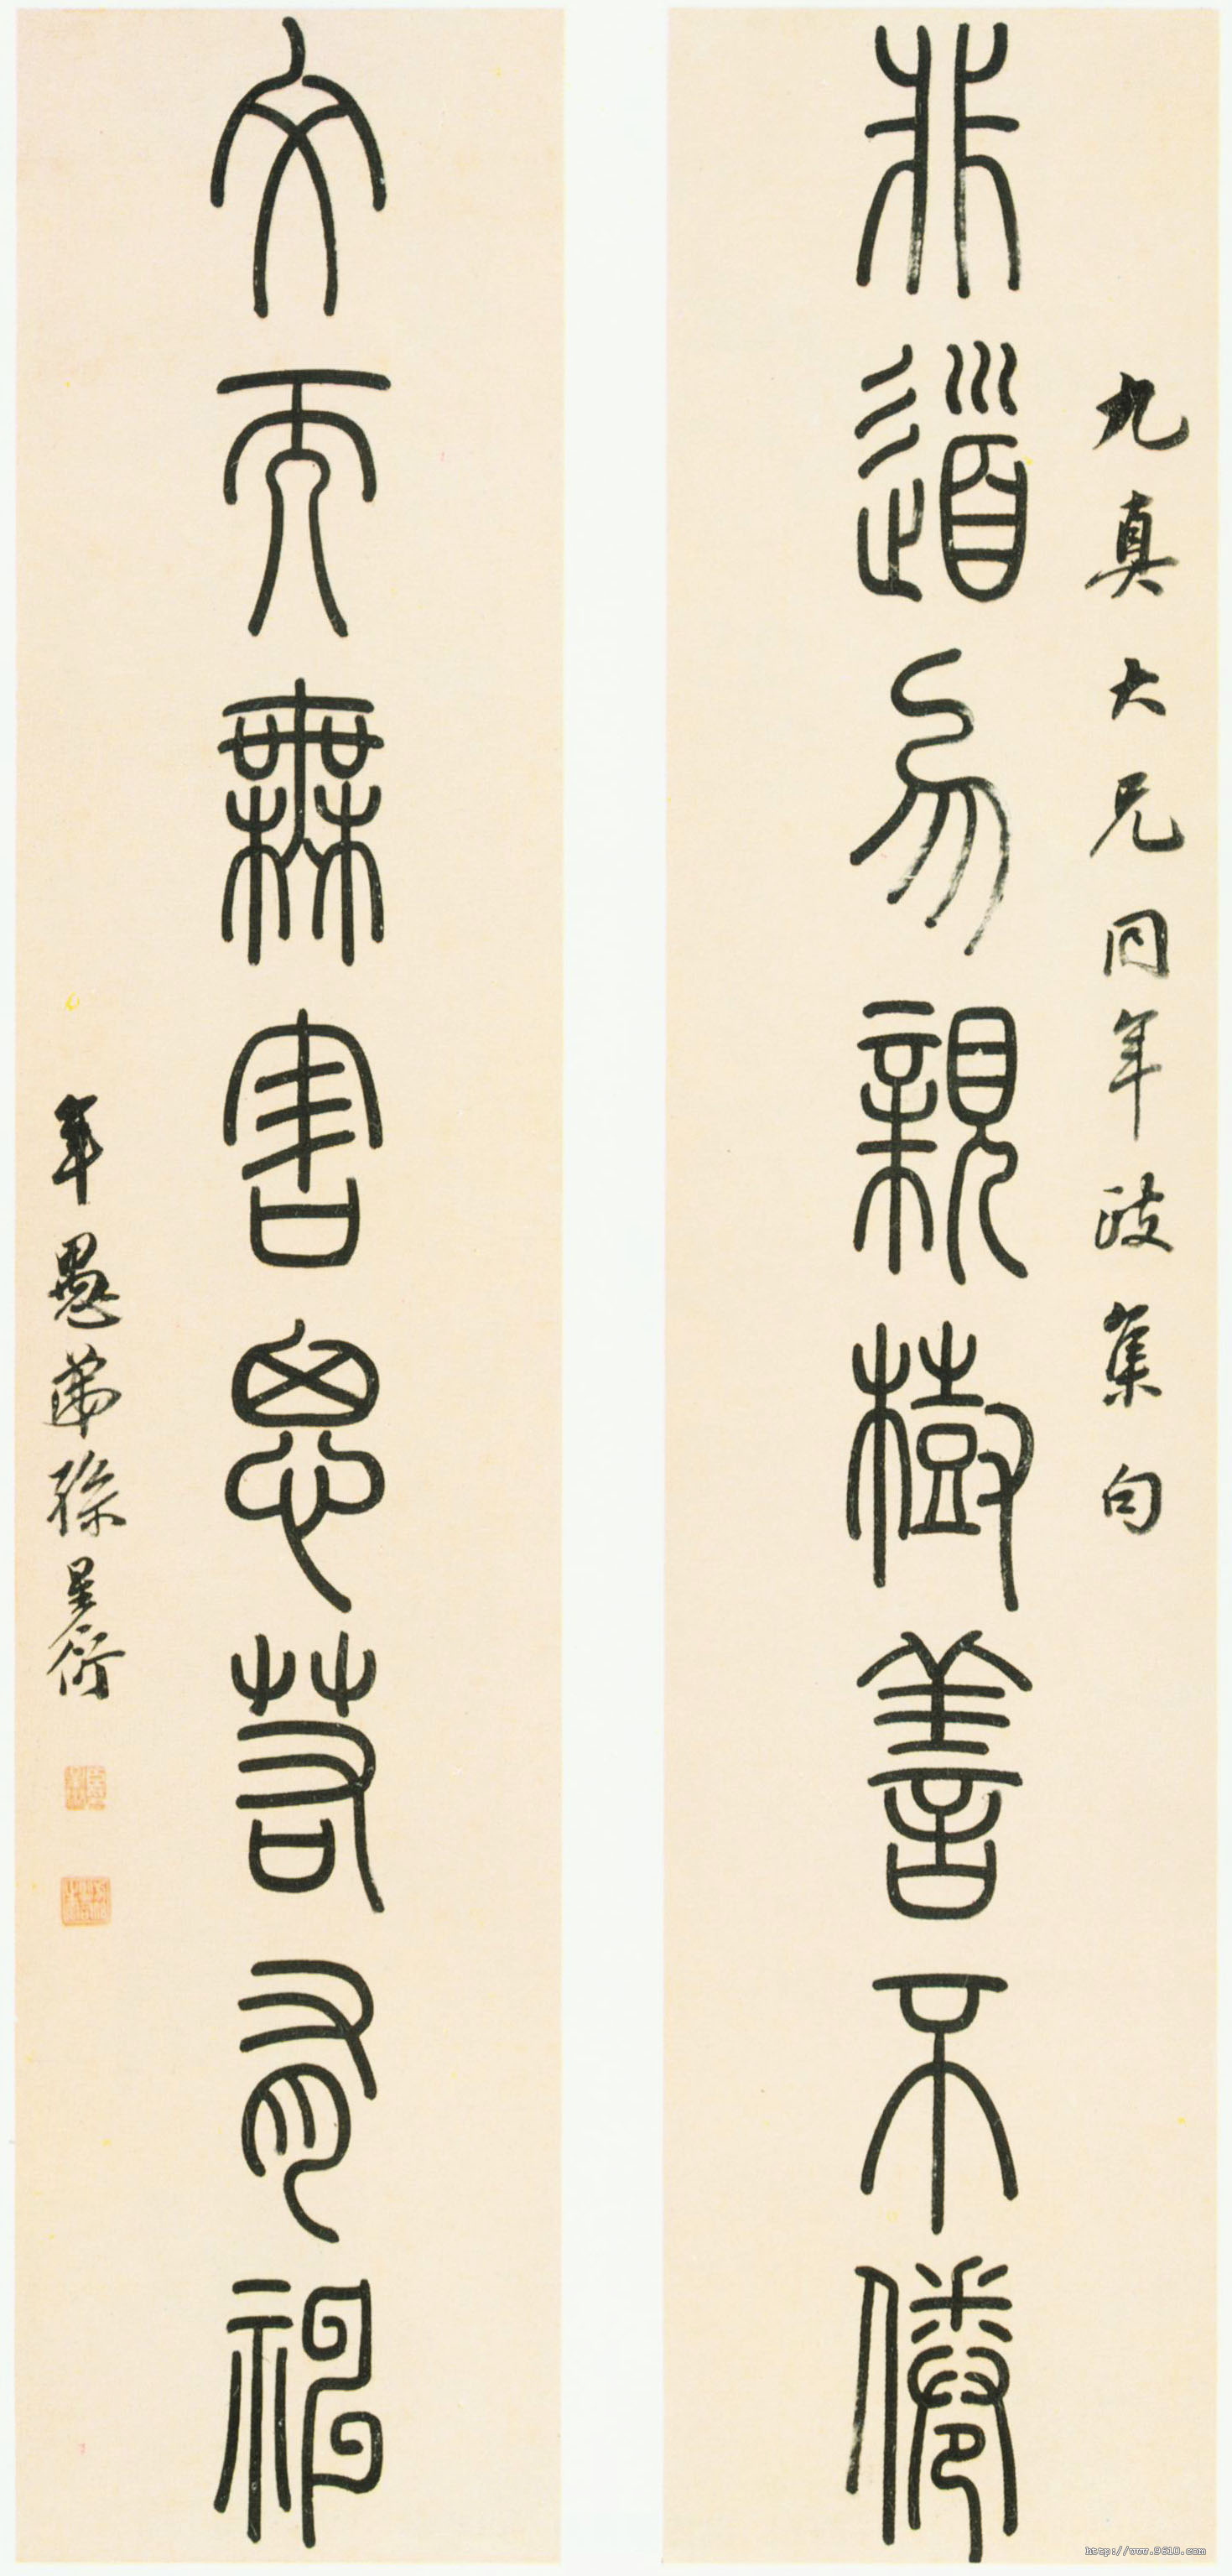 九真大兄同年政集句
非道勿親樹善不倦
文而無害思若有神
年愚弟孫星衍
http://www.9610.com